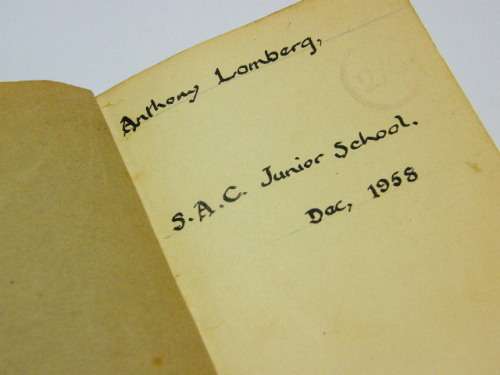 Anthony Lomberg,
S.A.C. Junior School.
Dec, 1958